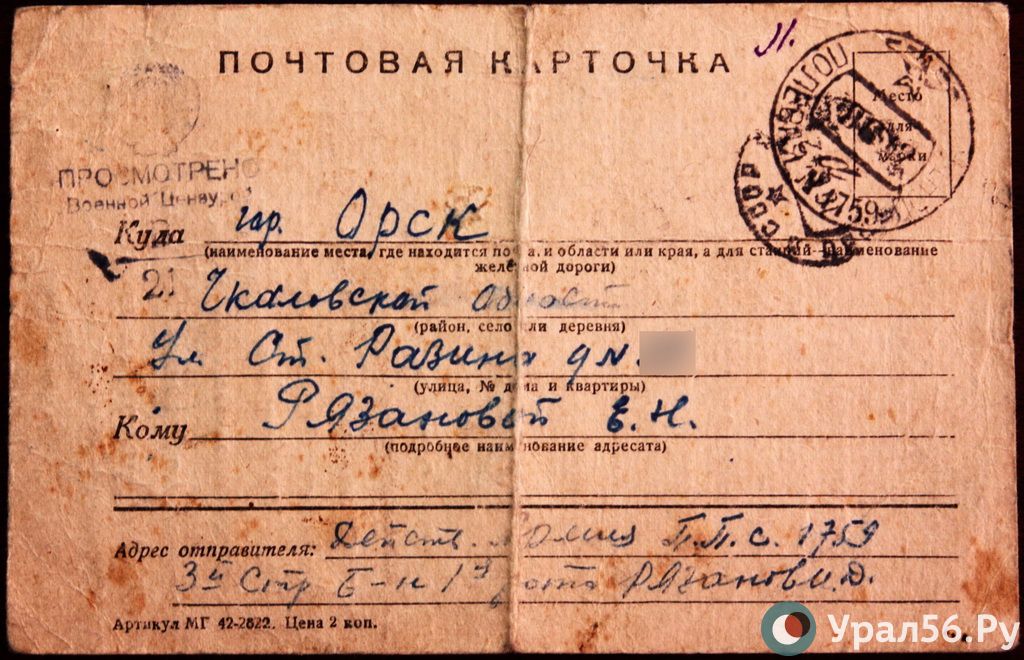 ПОЧТОВАЯ КАРТОЧКА
Место
для
марки
ПРОСМОТРЕНО
Военной Цензурой
Куда гор. Орск
(наименование места, где находится почта, и области или края, а для станций—наименование
железной дороги)
21 Чкаловской Области
(район, село или деревня)
Ул Ст. Разина д N.
(улица, № дома и квартиры)
Кому Рязановой Е. Н.
(подробное наименование адресата)
Адрес отправителя: Действ. Армия П.П.с. 1759
3й Стр Б-н 1я рота Рязанов И.Д.
Артикул МГ 42-2822. Цена 2 коп.
СССР
Урал56.Ру